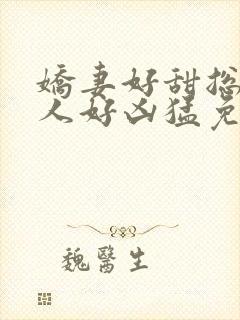 嬌妻好甜総
人好凶猛免
魏醫生